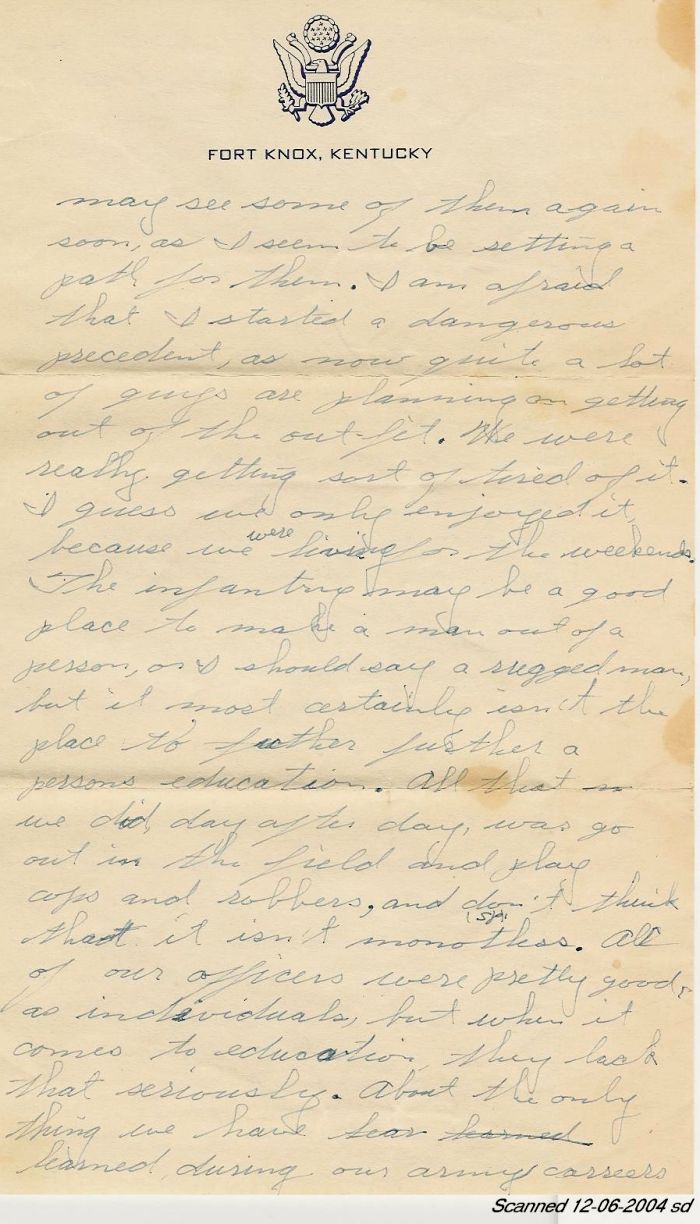 FORT KNOX, KENTUCKY
may see some of them again
soon, as I seem to be setting a
path for them. I am afraid
that I started a dangerous
precedent, as now quite a lot
of guys are planning on getting
out of the out-fit. We were
really getting sort of tired of it.
I guess we only enjoyed it,
because we were living for the weekends.
The infantry may be a good
place to make a man out of a
person, or I should say a rugged man,
but it most certainly isn't the
place to futher further a
persons education. All that
we did, day after day, was go
out in the field and play
cops and robbers, and don't think
that it isn't monotnss. (sp) All
of our officers were pretty good,
as individuals, but when it
comes to education, they lack
that seriously. About the only
thing we have lear learned
learned, during our army carreers
Scanned 12-06-2004 sd